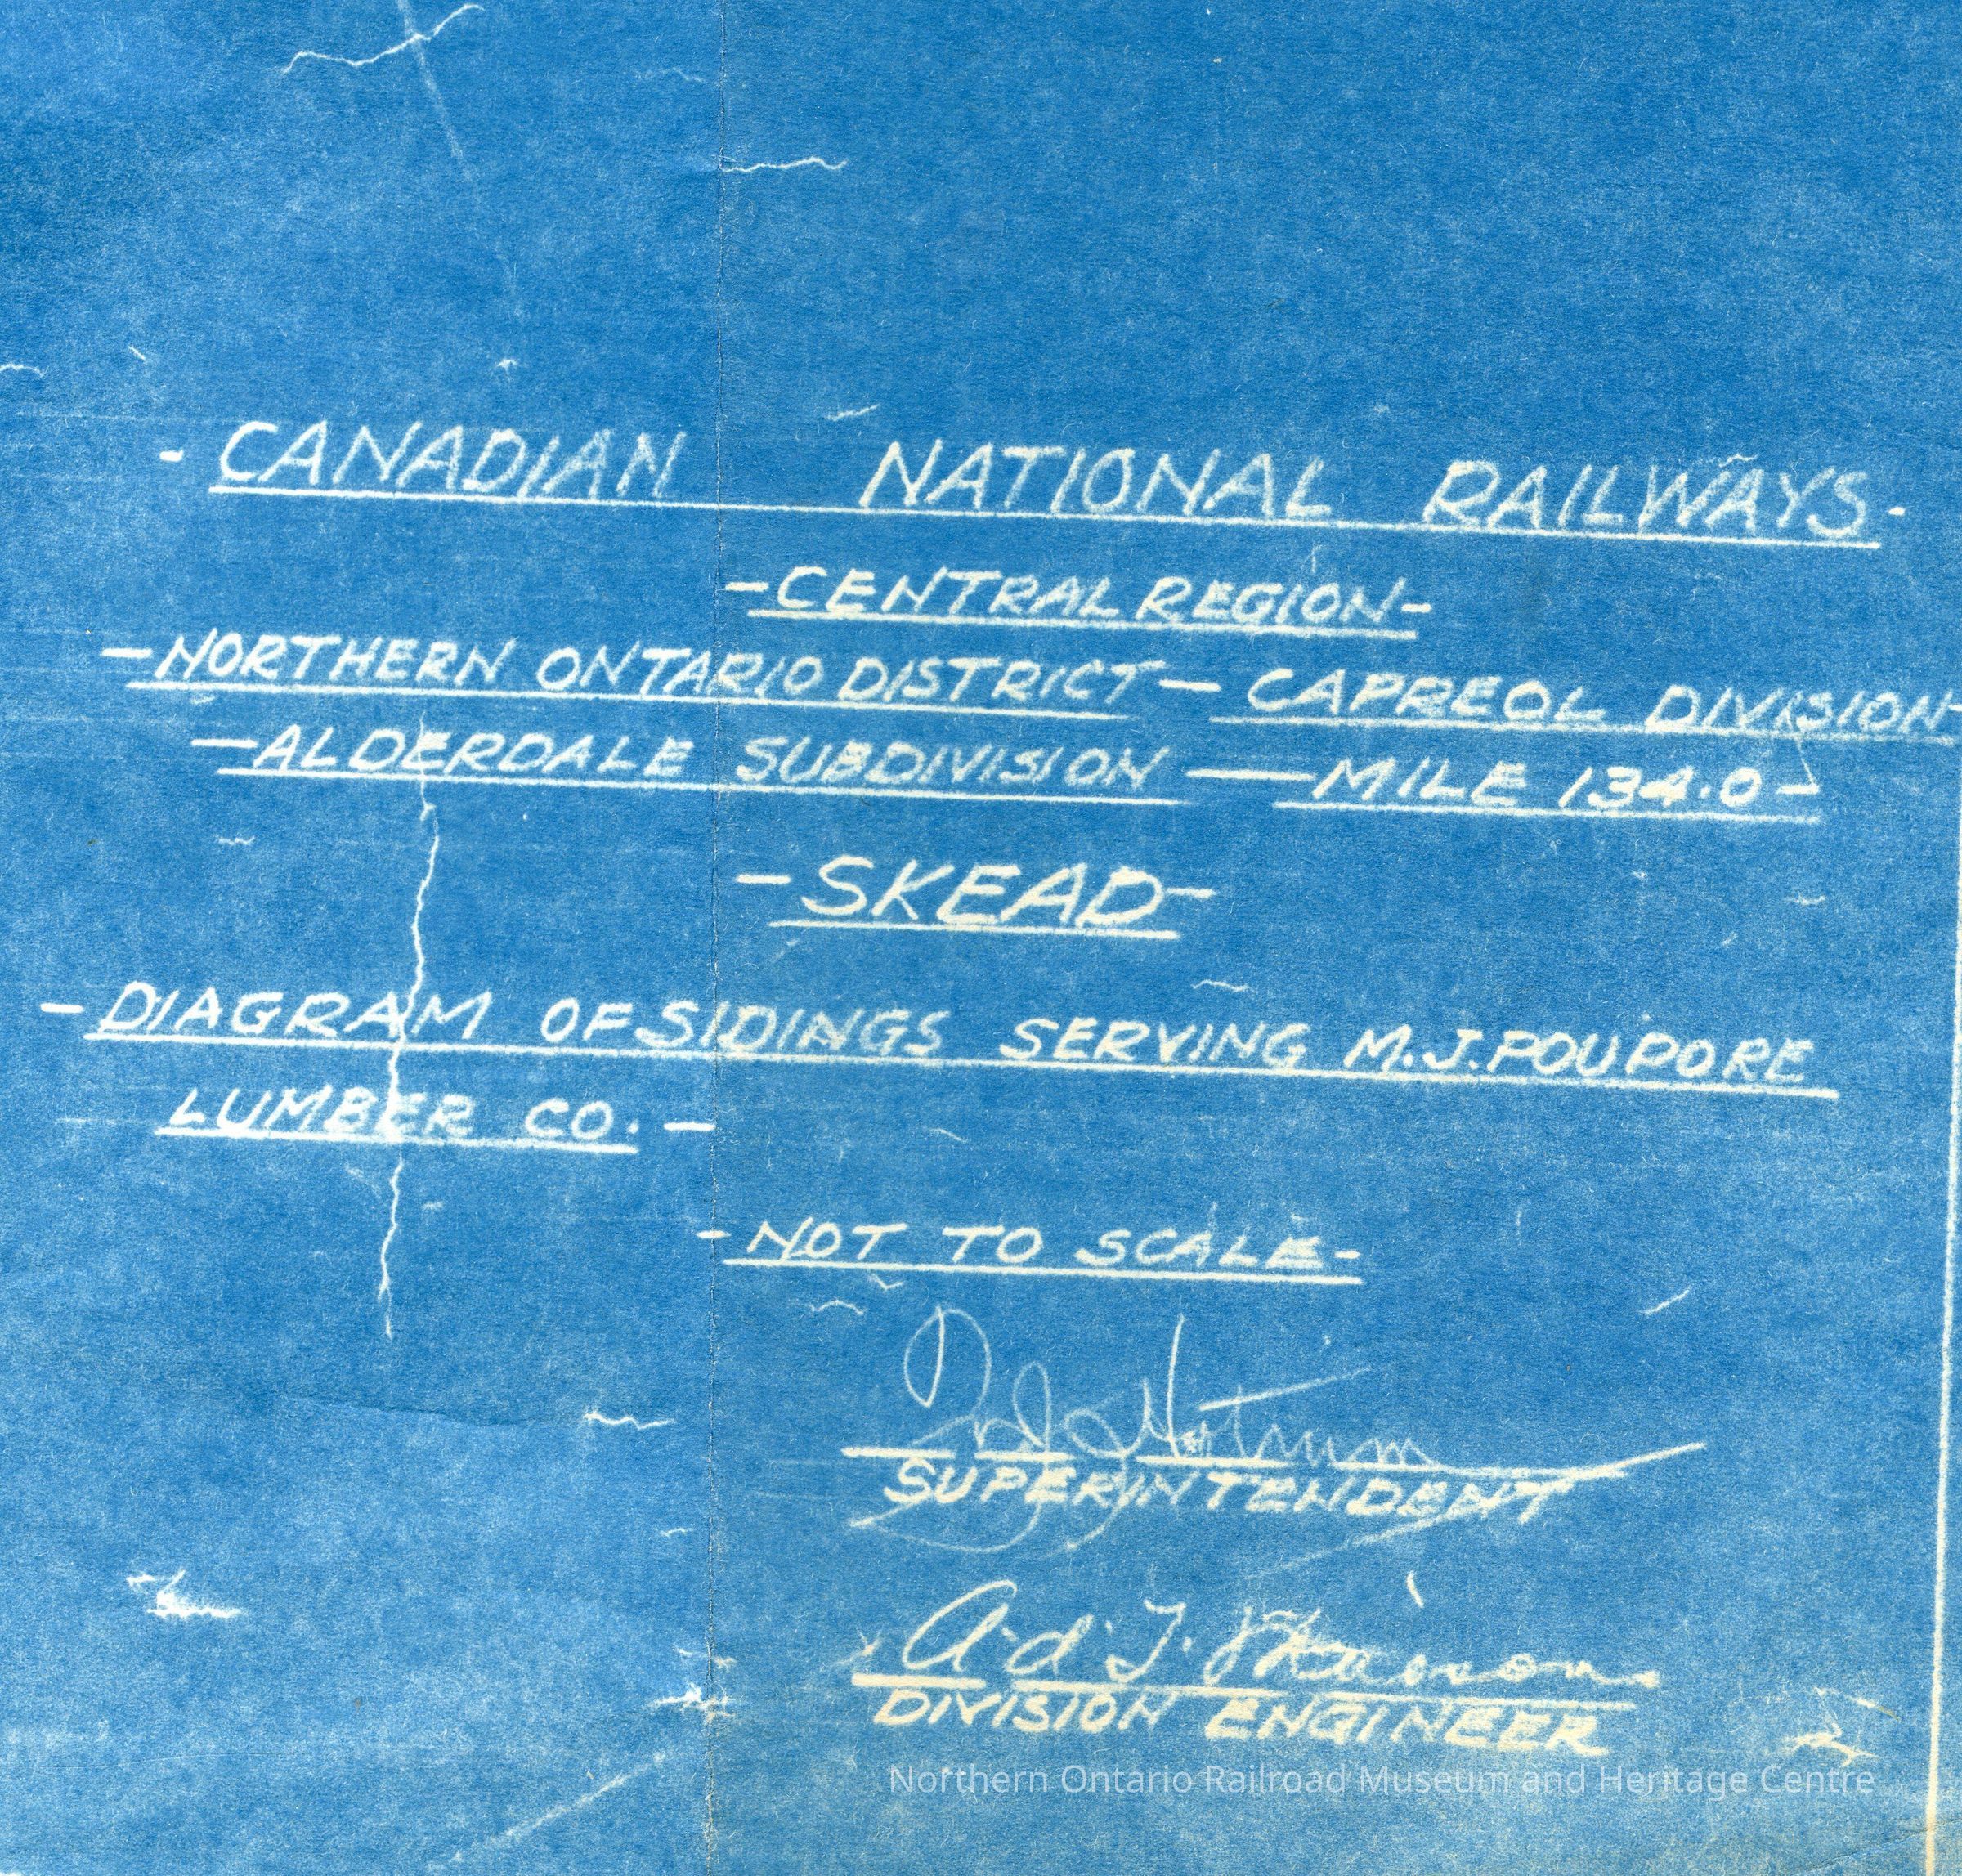 - CANADIAN NATIONAL RAILWAYS -
- CENTRAL REGION -
- NORTHERN ONTARIO DISTRICT - CAPREOL DIVISION -
- ALDERDALE SUBDIVISION - MILE 134.0 -
- SKEAD -
- DIAGRAM OF SIDINGS SERVING M.J. POUPORE
LUMBER CO. -
- NOT TO SCALE -
SUPERINTENDENT
DIVISION ENGINEER
Northern Ontario Railroad Museum and Heritage Centre